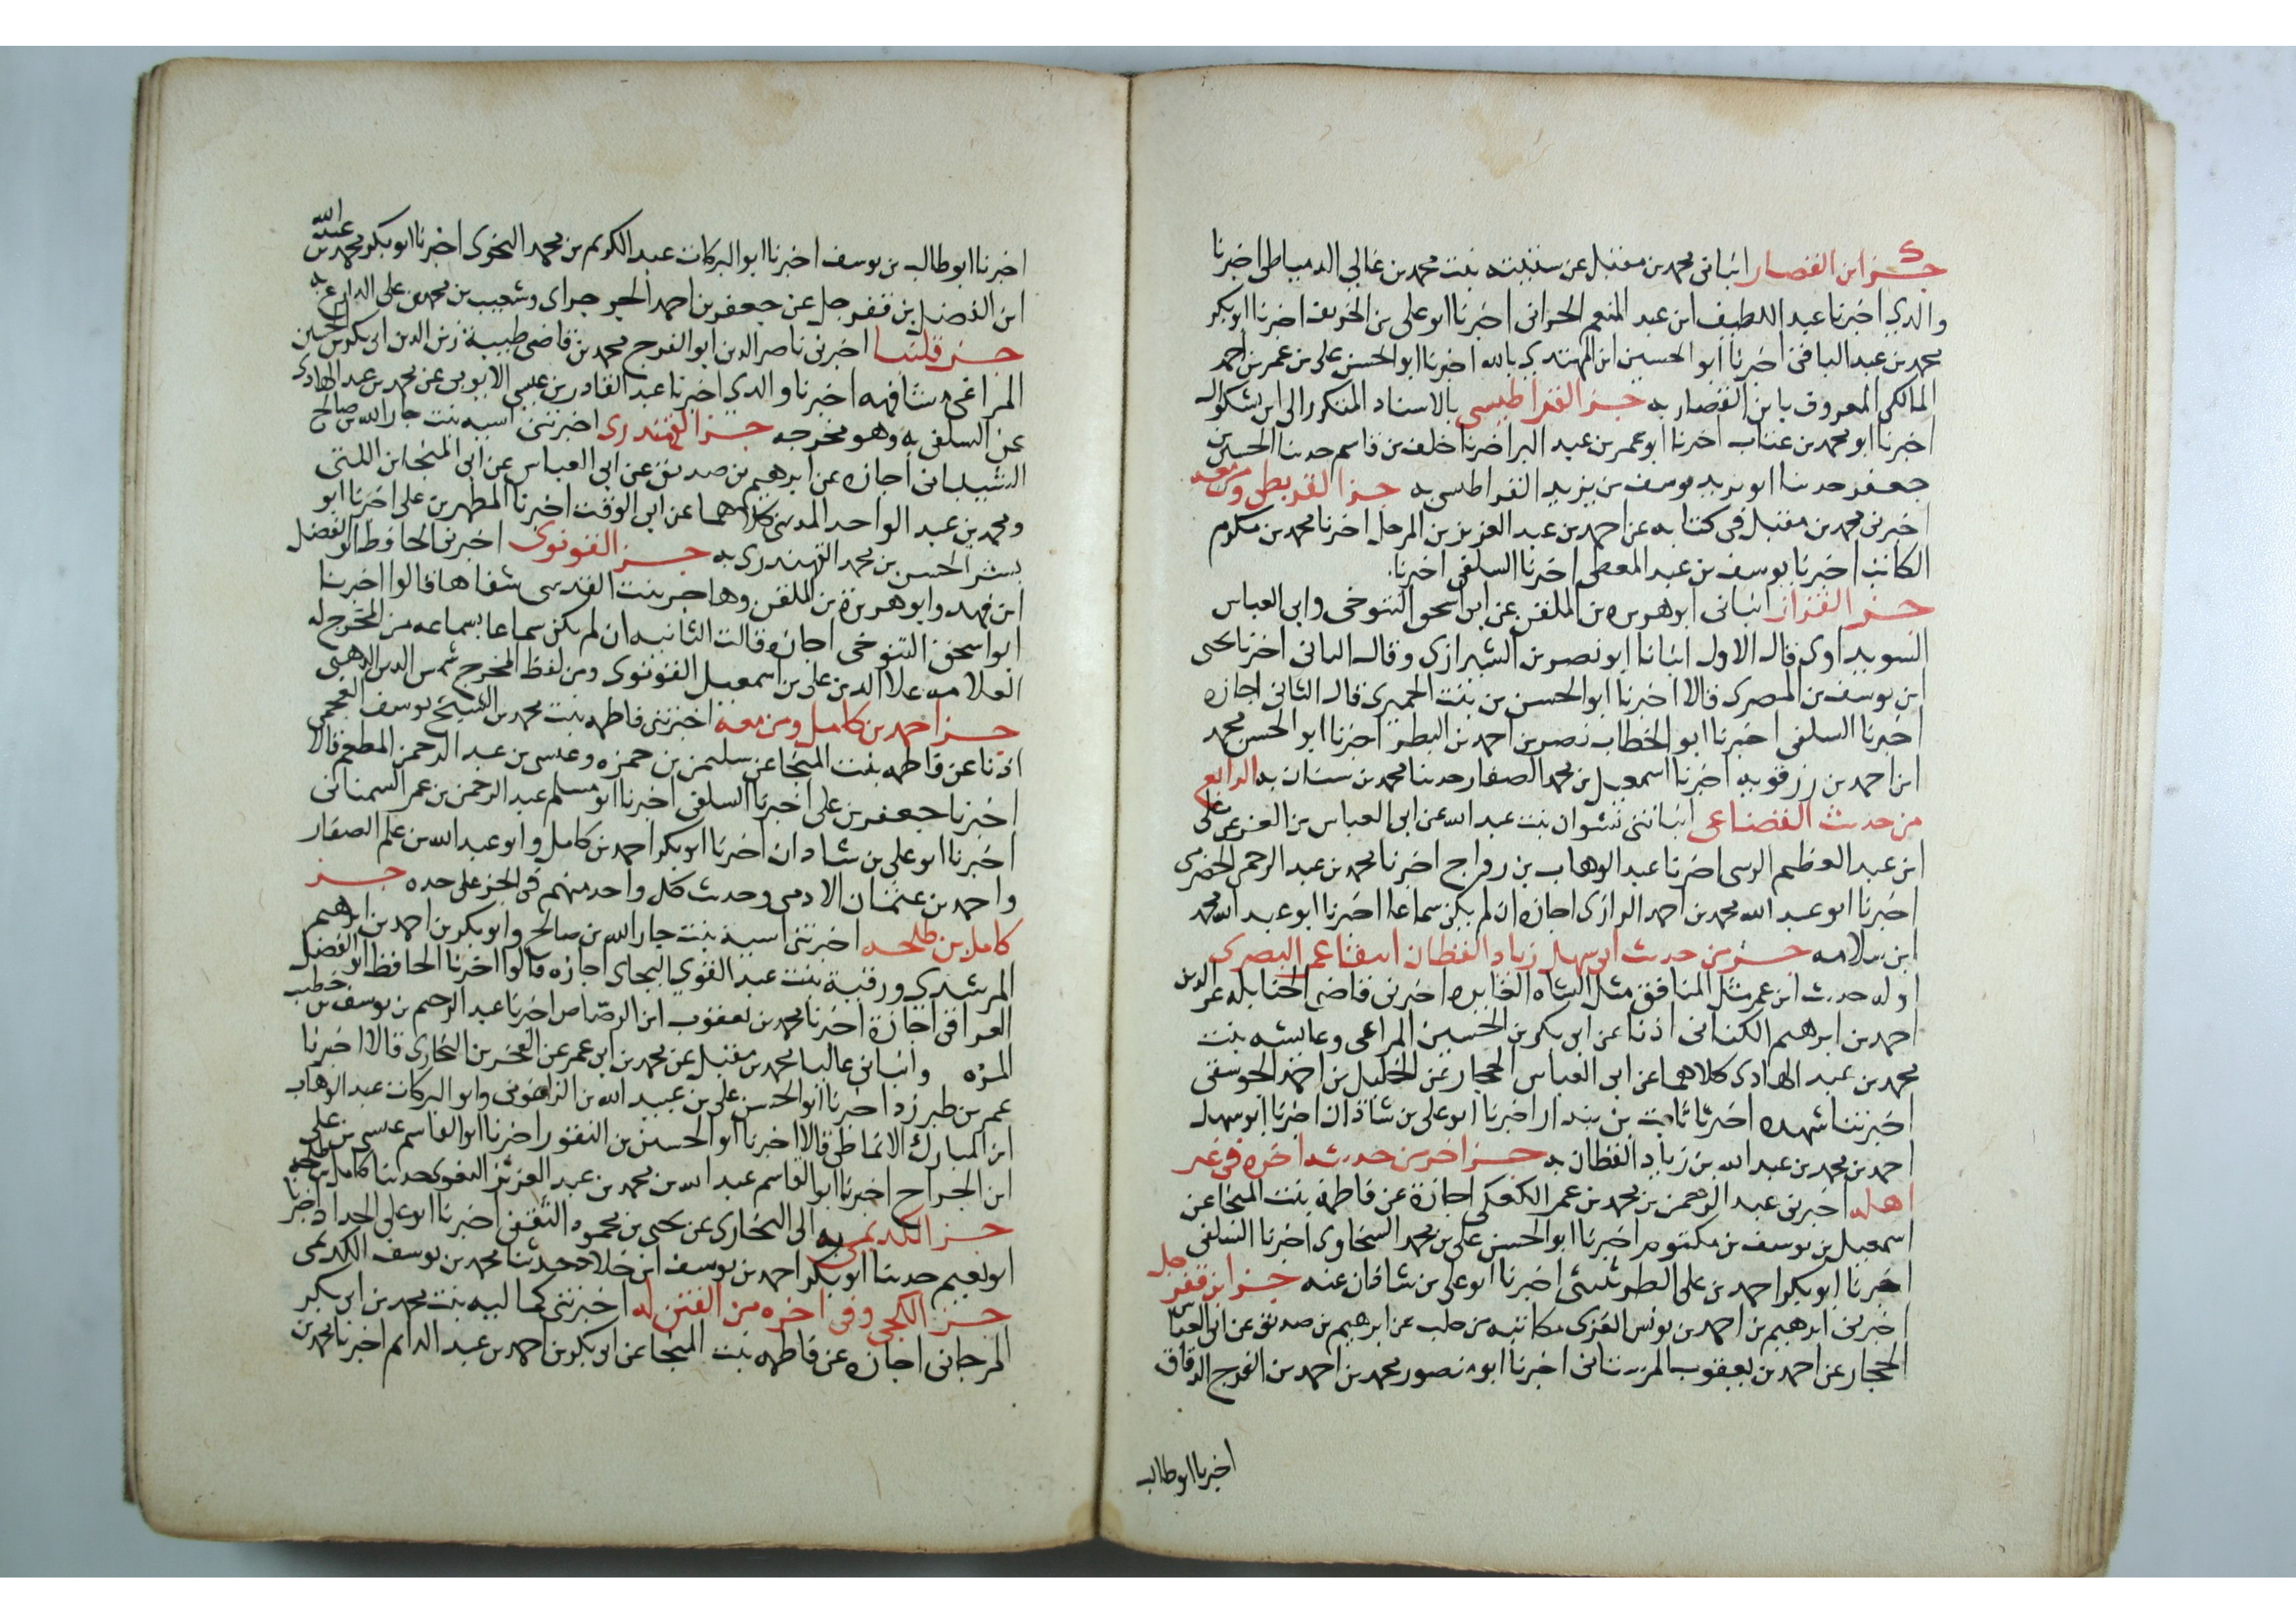 جزء ابن القصار انباني محمد بن مقبل عن ستيته بنت محمد بن غالي الدمياطي اخبرنا
والدي اخبرنا عبد اللطيف ابن عبد المنعم الحراني اخبرنا ابو علي بن الخريف اخبرنا ابو بكر
محمد بن عبد الباقي اخبرنا ابو الحسين ابن المهتدي بالله اخبرنا ابو الحسن علي بن عمر بن احمد
المالكي المعروف بابن القصار به جزء القراطيسي بالاسناد المتكرر الى ابن بشكوال
اخبرنا ابو محمد بن عتاب اخبرنا ابو عمر بن عبد البر اخبرنا خلف بن قاسم حدثنا الحسين بن
جعفر حدثنا ابو يزيد يوسف بن يزيد القراطيسي به جزء القريطي ومن معه
اخبرني محمد بن مقبل في كتابه عن احمد بن عبد العزيز بن المرحل اخبرنا محمد بن مكرم
الكاتب اخبرنا يوسف بن عبد المعطي اخبرنا السلفي اخبرنا
جزء القزاز انباني ابو هريره بن الملقن عن ابن اسحق التنوخي وابي العباس
السويداوي قال الاول انبانا ابو نصر بن الشيرازي وقال الثاني اخبرنا يحيى
ابن يوسف بن المصري قالا اخبرنا ابو الحسن بن بنت الجميزي قال الثاني اجازه
اخبرنا السلفي اخبرنا ابو الخطاب نصر بن احمد بن البطر اخبرنا ابو الحسن محمد
ابن احمد بن رزقويه اخبرنا اسمعيل بن محمد الصفار حدثنا محمد بن سنان به الرابع
من حديث القضاعي انباتني نشوان بنت عبد الله عن ابي العباس بن العز عن علي
ابن عبد العظيم الرسي اخبرنا عبد الوهاب بن رواج اخبرنا محمد بن عبد الرحمن الحضرمي
اخبرنا ابو عبد الله محمد بن احمد الرازي اجازه ان لم يكن سماعا اخبرنا ابو عبد الله محمد
ابن سلامه جزء من حديث ابي سهل زياد القطان انتقا عمر البصري
اوله حديث ابن عمر مثل المنافق مثل الشاه العايره اخبرني قاضي الحنابله عز الدين
احمد بن ابرهيم الكناني اذنا عن ابي بكر بن الحسين المراغي وعايشه بنت
محمد بن عبد الهادي كلاهما عن ابي العباس الحجار عن الخليل بن احمد الجوسقي
اخبرتنا شهده اخبرنا ثابت بن بندار اخبرنا ابو علي بن شاذان اخبرنا ابو سهل
احمد بن محمد بن عبد الله بن زياد القطان به جزء اخر من حديثه اخره في غير
اهله اخبرني عبد الرحمن بن محمد بن عمر الكعكي اجازة عن فاطمة بنت المنجا عن
اسمعيل بن يوسف بن مكتوم اخبرنا ابو الحسن علي بن محمد السخاوي اخبرنا السلفي
اخبرنا ابو بكر احمد بن علي الطريثيثي اخبرنا ابو علي بن شاذان عنه جزء ابن قفرجل
اخبرني ابرهيم بن احمد بن يونس الغزي مكاتبه من حلب عن ابرهيم بن صديق عن ابي العباس
الحجار عن احمد بن يعقوب المرستاني اخبرنا ابو منصور محمد بن احمد بن الفرج الدقاق
اخبرنا ابو طالب
اخبرنا ابو طالب بن يوسف اخبرنا ابو البركات عبد الكريم بن محمد النحوي اخبرنا ابو بكر محمد بن عبيد الله
ابن الفضل بن قفرجل عن جعفر بن احمد الجرجراي وشعيب بن محمد بن علي الدارع به
جزء قلنبا اخبرني ناصر الدين ابو الفرج محمد بن قاضي طيبة زين الدين ابي بكر بن الحسين
المراغي مشافهه اخبرنا والدي اخبرنا عبد القادر بن عيسى الايوبي عن محمد بن عبد الهادي
عن السلفي به وهو مخرجه جزء القهندزي اخبرتني اسيه بنت جار الله بن صالح
الشيباني اجازه عن ابرهيم بن صديق عن ابي العباس عن ابي المنجا بن اللتي
ومحمد بن عبد الواحد المديني كلاهما عن ابي الوقت اخبرنا المطهر بن علي اخبرنا ابو
بشر الحسن بن محمد القهندزي به جزء القونوي اخبرني الحافظ ابو الفضل
ابن فهد وابو هريرة بن الملقن وهاجر بنت القدسي شفاها قالوا اخبرنا
ابو اسحق التنوخي اجازه قالت الثانيه ان لم يكن سماعا بسماعه من المخرج له
العلامه علا الدين علي بن اسمعيل القونوي ومن لفظ المخرج شمس الدين الذهبي
جزء احمد بن كامل ومن معه اخبرتني فاطمه بنت محمد بن الشيخ يوسف العجمي
اذنا عن فاطمه بنت المنجا عن سليمن بن حمزه وعيسى بن عبد الرحمن المطعم قالا
اخبرنا جعفر بن علي اخبرنا السلفي اخبرنا ابو مسلم عبد الرحمن بن عمر السمناني
اخبرنا ابو علي بن شاذان اخبرنا ابو بكر احمد بن كامل وابو عبد الله بن علم الصفار
واحمد بن عثمان الادمي وحديث كل واحد منهم في الجزء على حده جزء
كامل بن طلحه اخبرتني اسية بنت جار الله بن صالح وابو بكر بن احمد بن ابرهيم
المرشدي ورقية بنت عبد القوي البجاي اجازه قالوا اخبرنا الحافظ ابو الفضل
العراقي اجازة اخبرنا محمد بن يعقوب ابن الرصاص اخبرنا عبد الرحيم بن يوسف بن خطيب
المزه وانباني عاليا محمد بن مقبل عن محمد بن ابي عمر عن الفخر بن البخاري قالا اخبرنا
عمر بن طبرزد اخبرنا ابو الحسن علي بن عبيد الله بن الزاغوني وابو البركات عبد الوهاب
ابن المبارك الانماطي قالا اخبرنا ابو الحسين بن النقور اخبرنا ابو القاسم عيسى بن علي
ابن الجراح اخبرنا ابو القاسم عبد الله بن محمد بن عبد العزيز البغوي حدثنا كامل بن طلحه به
جزء الكديمي الى البخاري عن يحيى بن محمود الثقفي اخبرنا ابو علي الحداد اخبرنا
ابو نعيم حدثنا ابو بكر احمد بن يوسف ابن خلاد حدثنا محمد بن يوسف الكديمي
جزء الكجي وفي اخره من الفتن له اخبرتني كماليه بنت محمد بن ابي بكر
المرجاني اجازه عن فاطمه بنت المنجا عن ابي بكر بن احمد بن عبد الدائم اخبرنا محمد بن